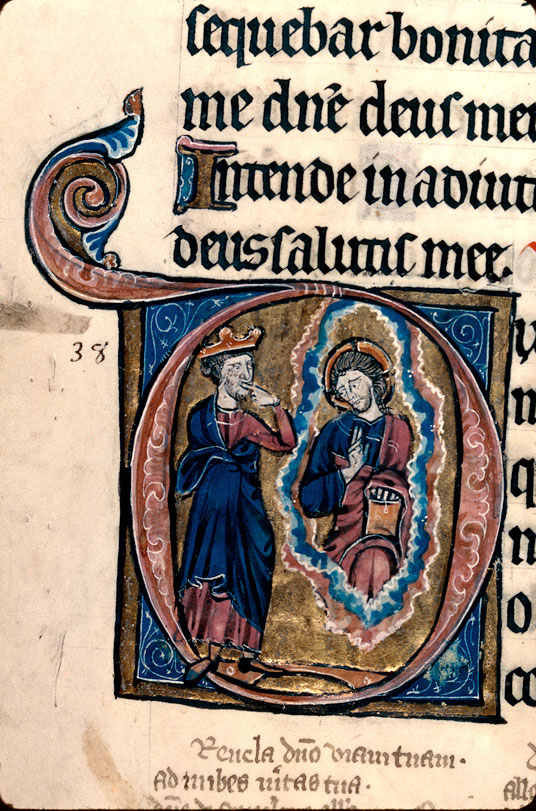 sequebar bonita
me dn̄e deus meu
Intende in adiut
deus salutis mee.
38
D
Reuela dn̄o uiam tuam.
ad nubes u̅itas tua.